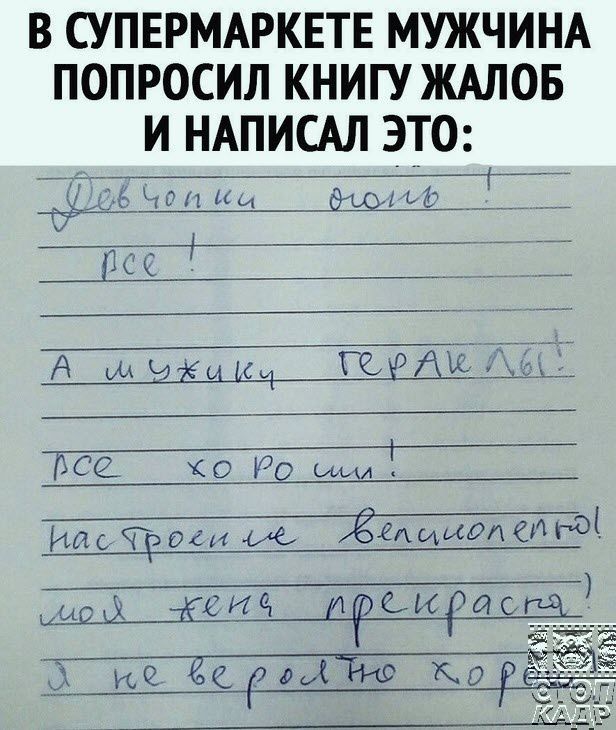 В СУПЕРМАРКЕТЕ МУЖЧИНА
ПОПРОСИЛ КНИГУ ЖАЛОБ
И НАПИСАЛ ЭТО:
Девчонки огонь !
все !
А мужики ГЕРАКЛЫ!
все хороши!
настроение великолепно!
моя жена прекрасна!
Я не вероятно хорош
СТОП
КАДР